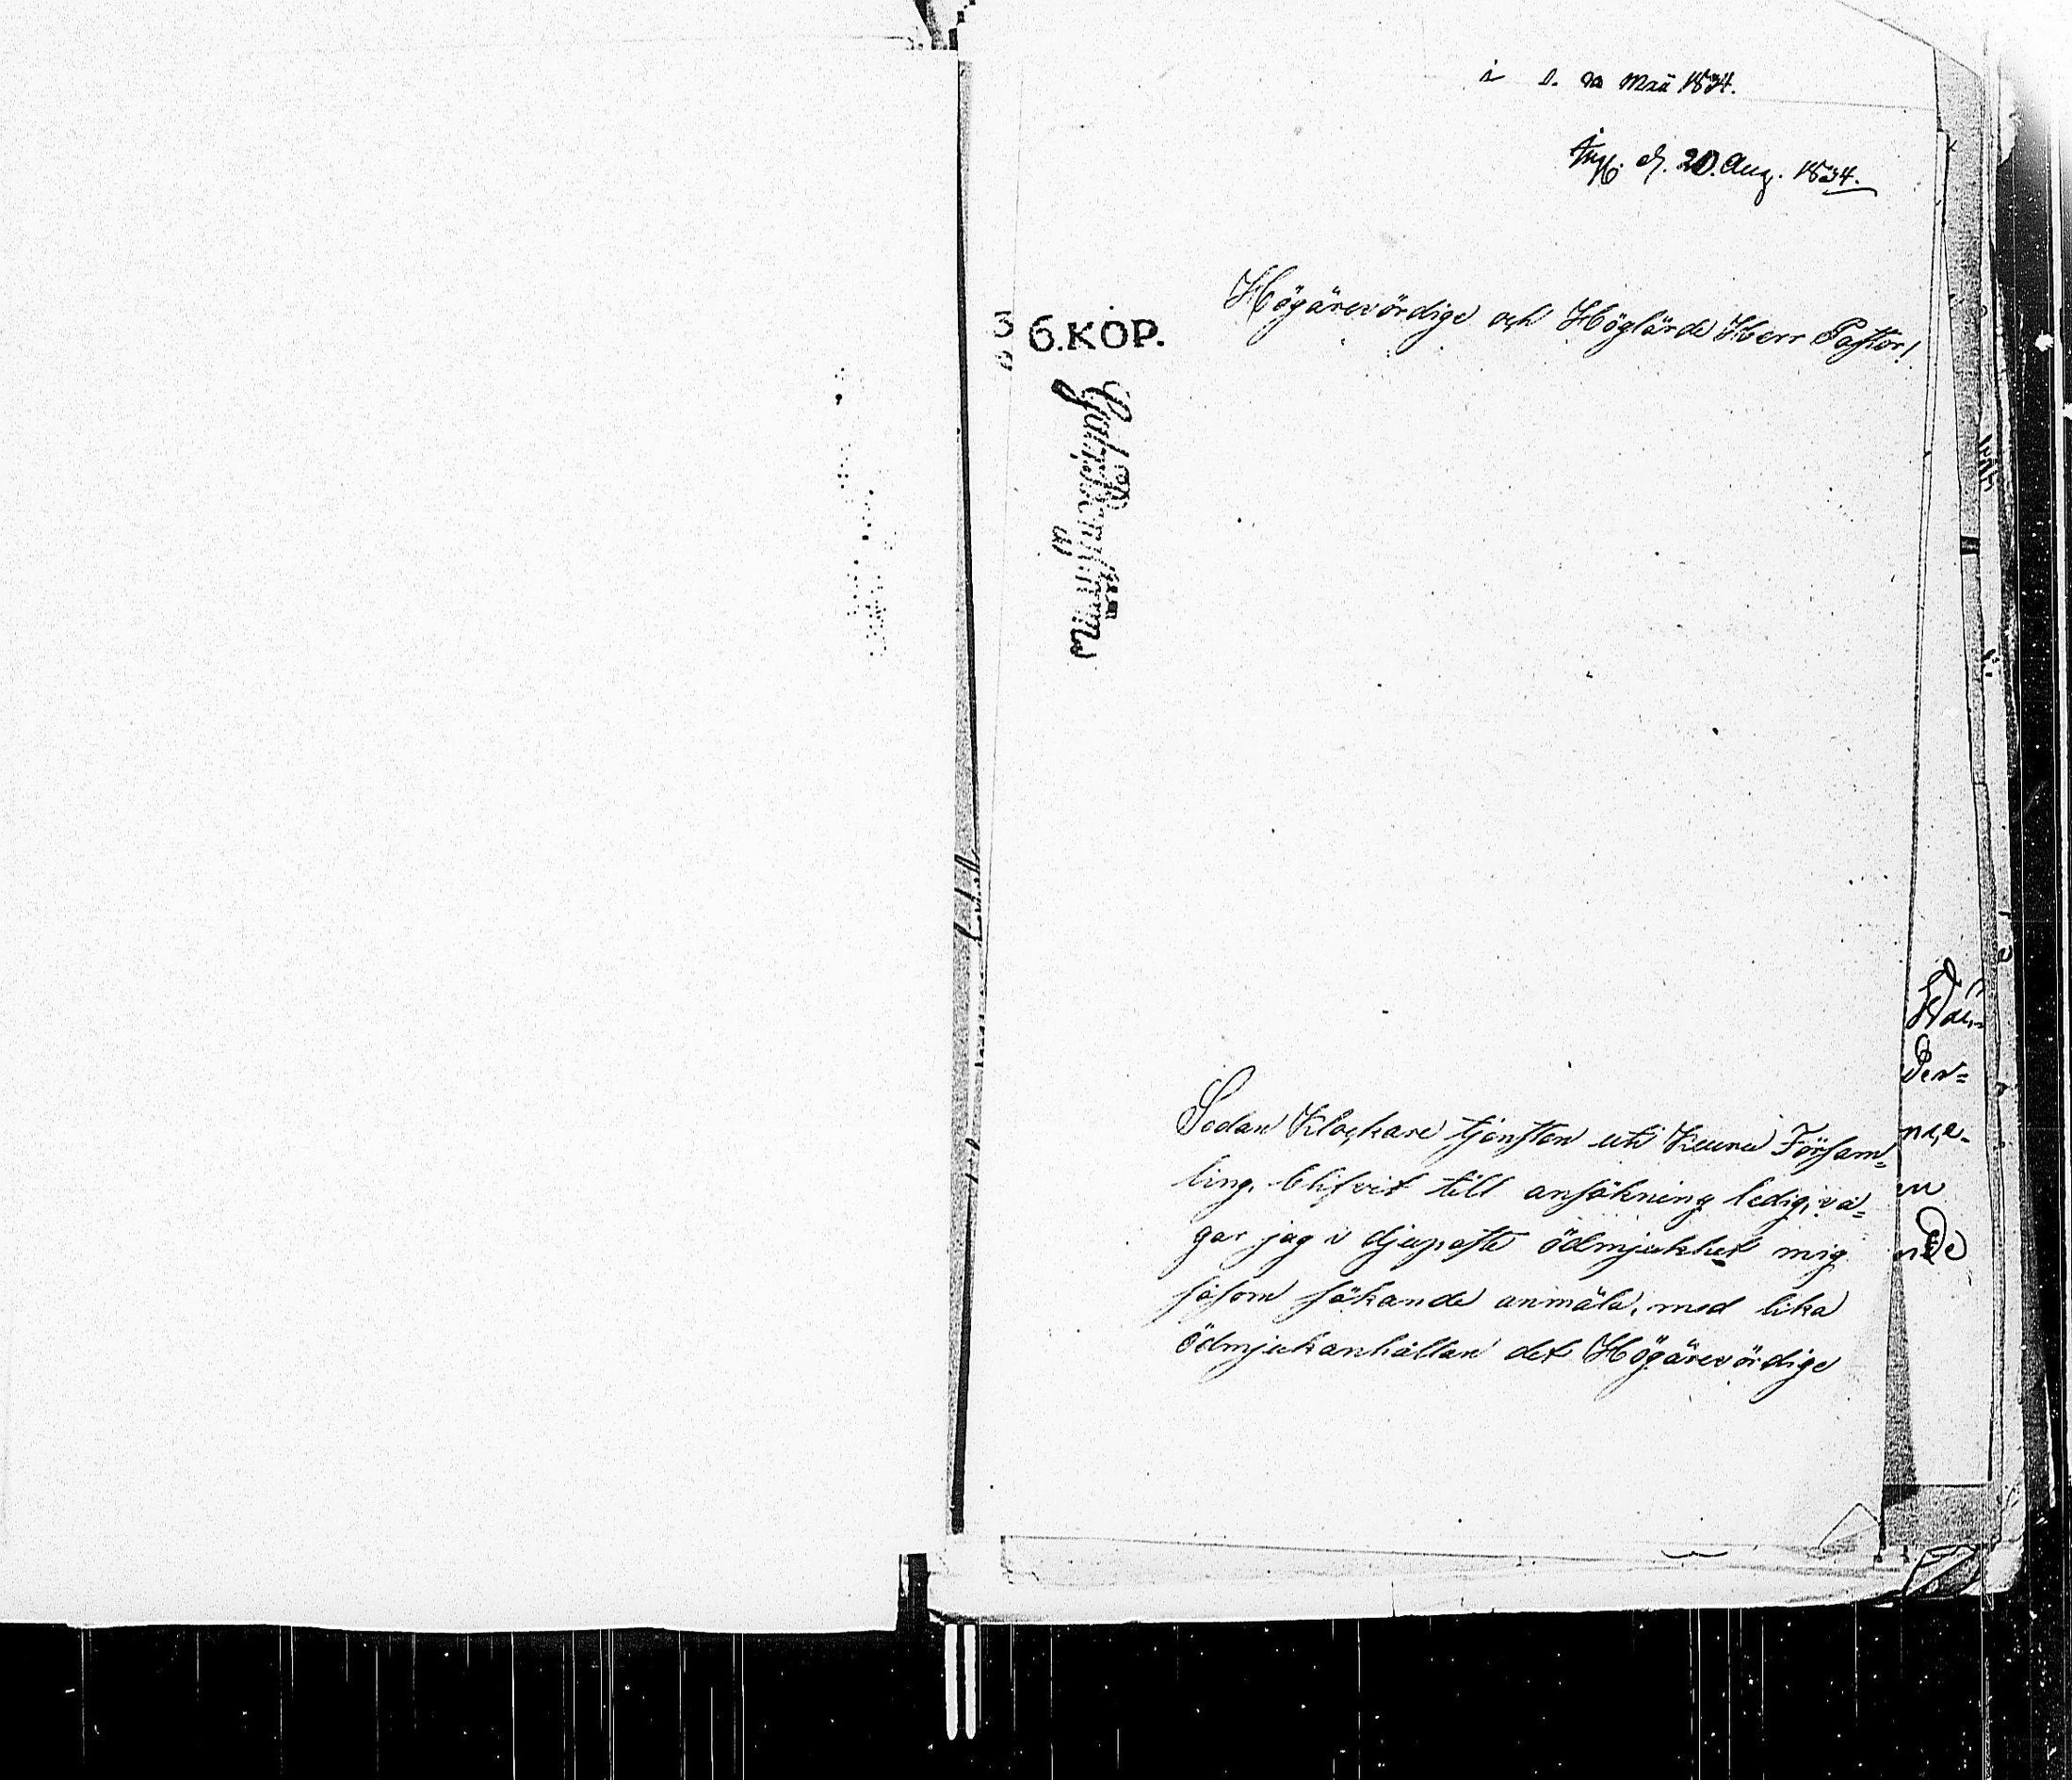 Maii 1834.
d. 20. Aug. 1834.
Högärevördige och Höglärde Herr Pastor!
6. KOP.
Sedan Klockare tjensten uti Keuru Församl=
ling, blifvit till ansökning ledig, vå=
gar jag i djupaste ödmjukhet mig
såsom sökande anmäla, med lika
ödmjuk anhållan det Högärevördige